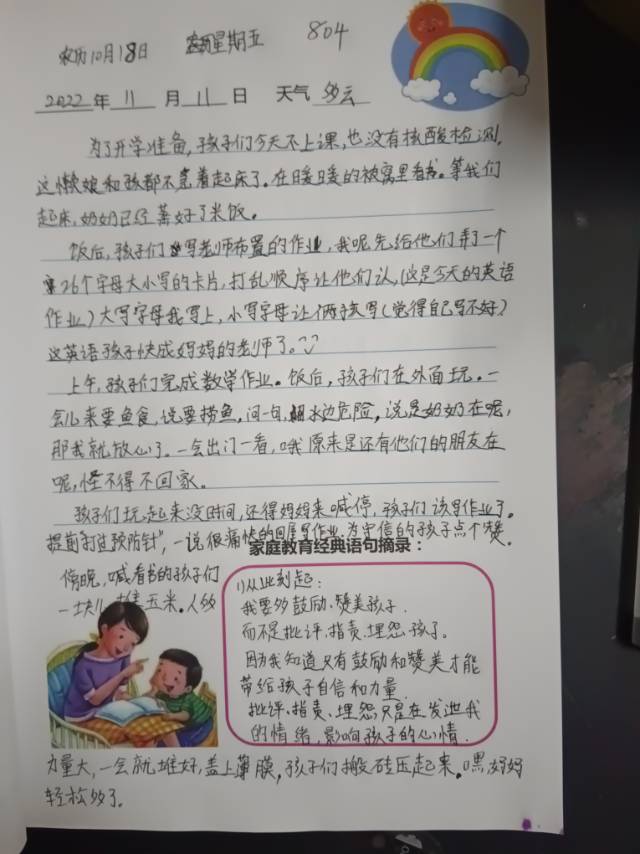 农历10月18日 星期五 804
2022年 11月 11日 天气 多云
为了开学准备，孩子们今天不上课，也没有核酸检测，
这懒娘和孩都不急着起床了。在暖暖的被窝里看书。等我们
起床，奶奶已经蒸好了米饭。
饭后，孩子们写老师布置的作业，我呢先给他们弄了一个
26个字母大小写的卡片，打乱顺序让他们认，（这是今天的英语
作业）大写字母我写上，小写字母让俩孩写（觉得自己写不好）
这英语孩子快成妈妈的老师了。
上午，孩子们完成数学作业。饭后，孩子们在外面玩。一
会儿来要鱼食，说要捞鱼，问一句，水边危险，说是奶奶在呢，
那我就放心了。一会出门一看，哦原来是还有他们的朋友在
呢，怪不得不回家。
孩子们玩起来没时间，还得妈妈来喊停，孩子们该写作业了。
提前"打过预防针"，一说很痛快的回屋写作业，为守信的孩子点个赞。
家庭教育经典语句摘录：
傍晚，喊看书的孩子们
一块儿堆玉米。人多
1)从此刻起：
我要多鼓励、赞美孩子.
而不是批评、指责、埋怨孩子。
因为我知道只有鼓励和赞美才能
带给孩子自信和力量.
批评、指责、埋怨只是在发泄我
的情绪，影响孩子的心情.
力量大，一会就堆好，盖上薄膜，孩子们搬砖压起来。嘿，妈妈
轻松多了。